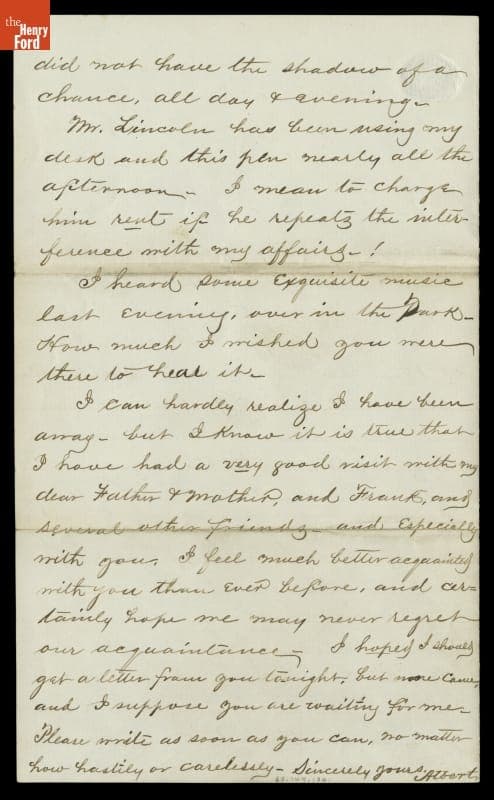 the
Henry
Ford
did not have the shadow of a
chance, all day & evening.
Mr. Lincoln has been using my
desk and this pen nearly all the
afternoon - I mean to charge
him rent if he repeats the inter-
ference with my affairs - !
I heard some exquisite music
last evening, over in the Park -
How much I wished you were
there to hear it -
I can hardly realize I have been
away - but I know it is true that
I have had a very good visit with my
dear Father & Mother, and Frank, and
several other friends - and Especially
with you. I feel much better acquainted
with you than ever before, and cer-
tainly hope we may never regret
our acquaintance - I hoped I should
get a letter from you tonight, but none came,
and I suppose you are waiting for me -
Please write as soon as you can, no matter
how hastily or carelessly - Sincerely yours, Albert